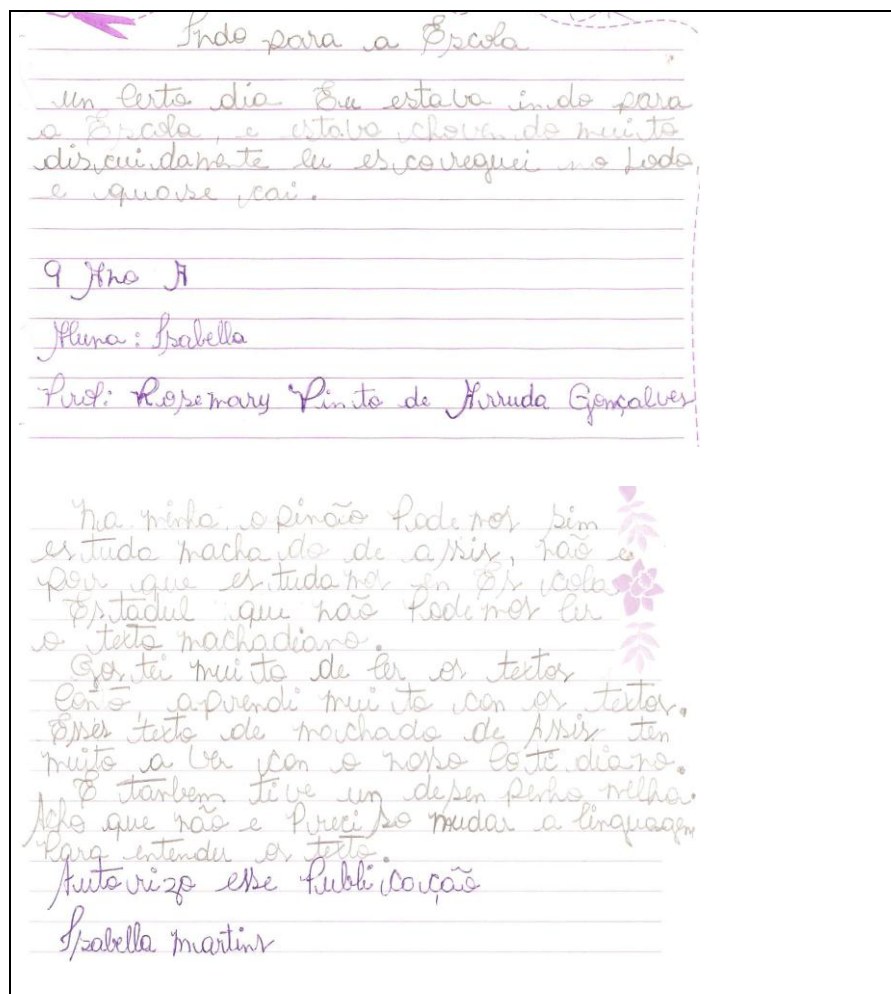 Indo para a Escola
un certo dia Eu estava indo para
a Escola, e estava chovendo muito
discuidamente eu escorreguei no Lodo
e quase cai.
9 Ano A
Aluna: Isabella
Prof: Rosemary Pinto de Arruda Gonçalves
Na minha opinão Pode mos sim
estuda machado de assis, não e
por que estudamos en Escola
Estadul que não Podemos ler
o texto machadiano.
Gostei muito de ler os textos
Conto, aprendi muito con os textos.
Esses texto de machado de Assis ten
muito a ver con o nosso Cotidiano.
E tanben tive un desenpenho melho.
Acho que não e Preciso mudar a linguagem
Para entender os texto.
Autorizo esse Publicação
Isabella martins